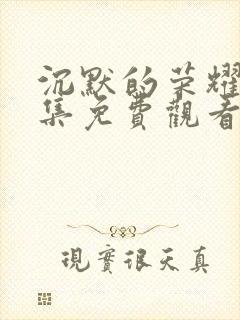 沉默的荣耀
集免費觀看
現實很天真